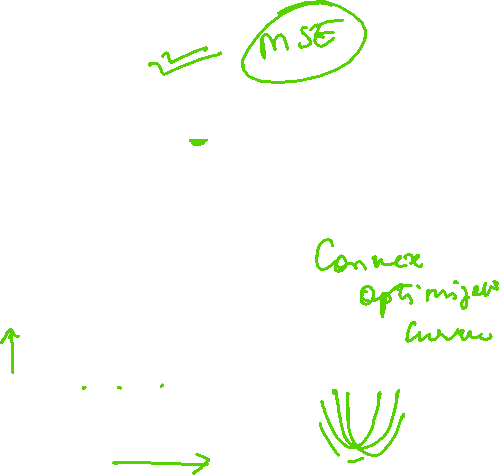 MSE
Convex
optimizati
Curve